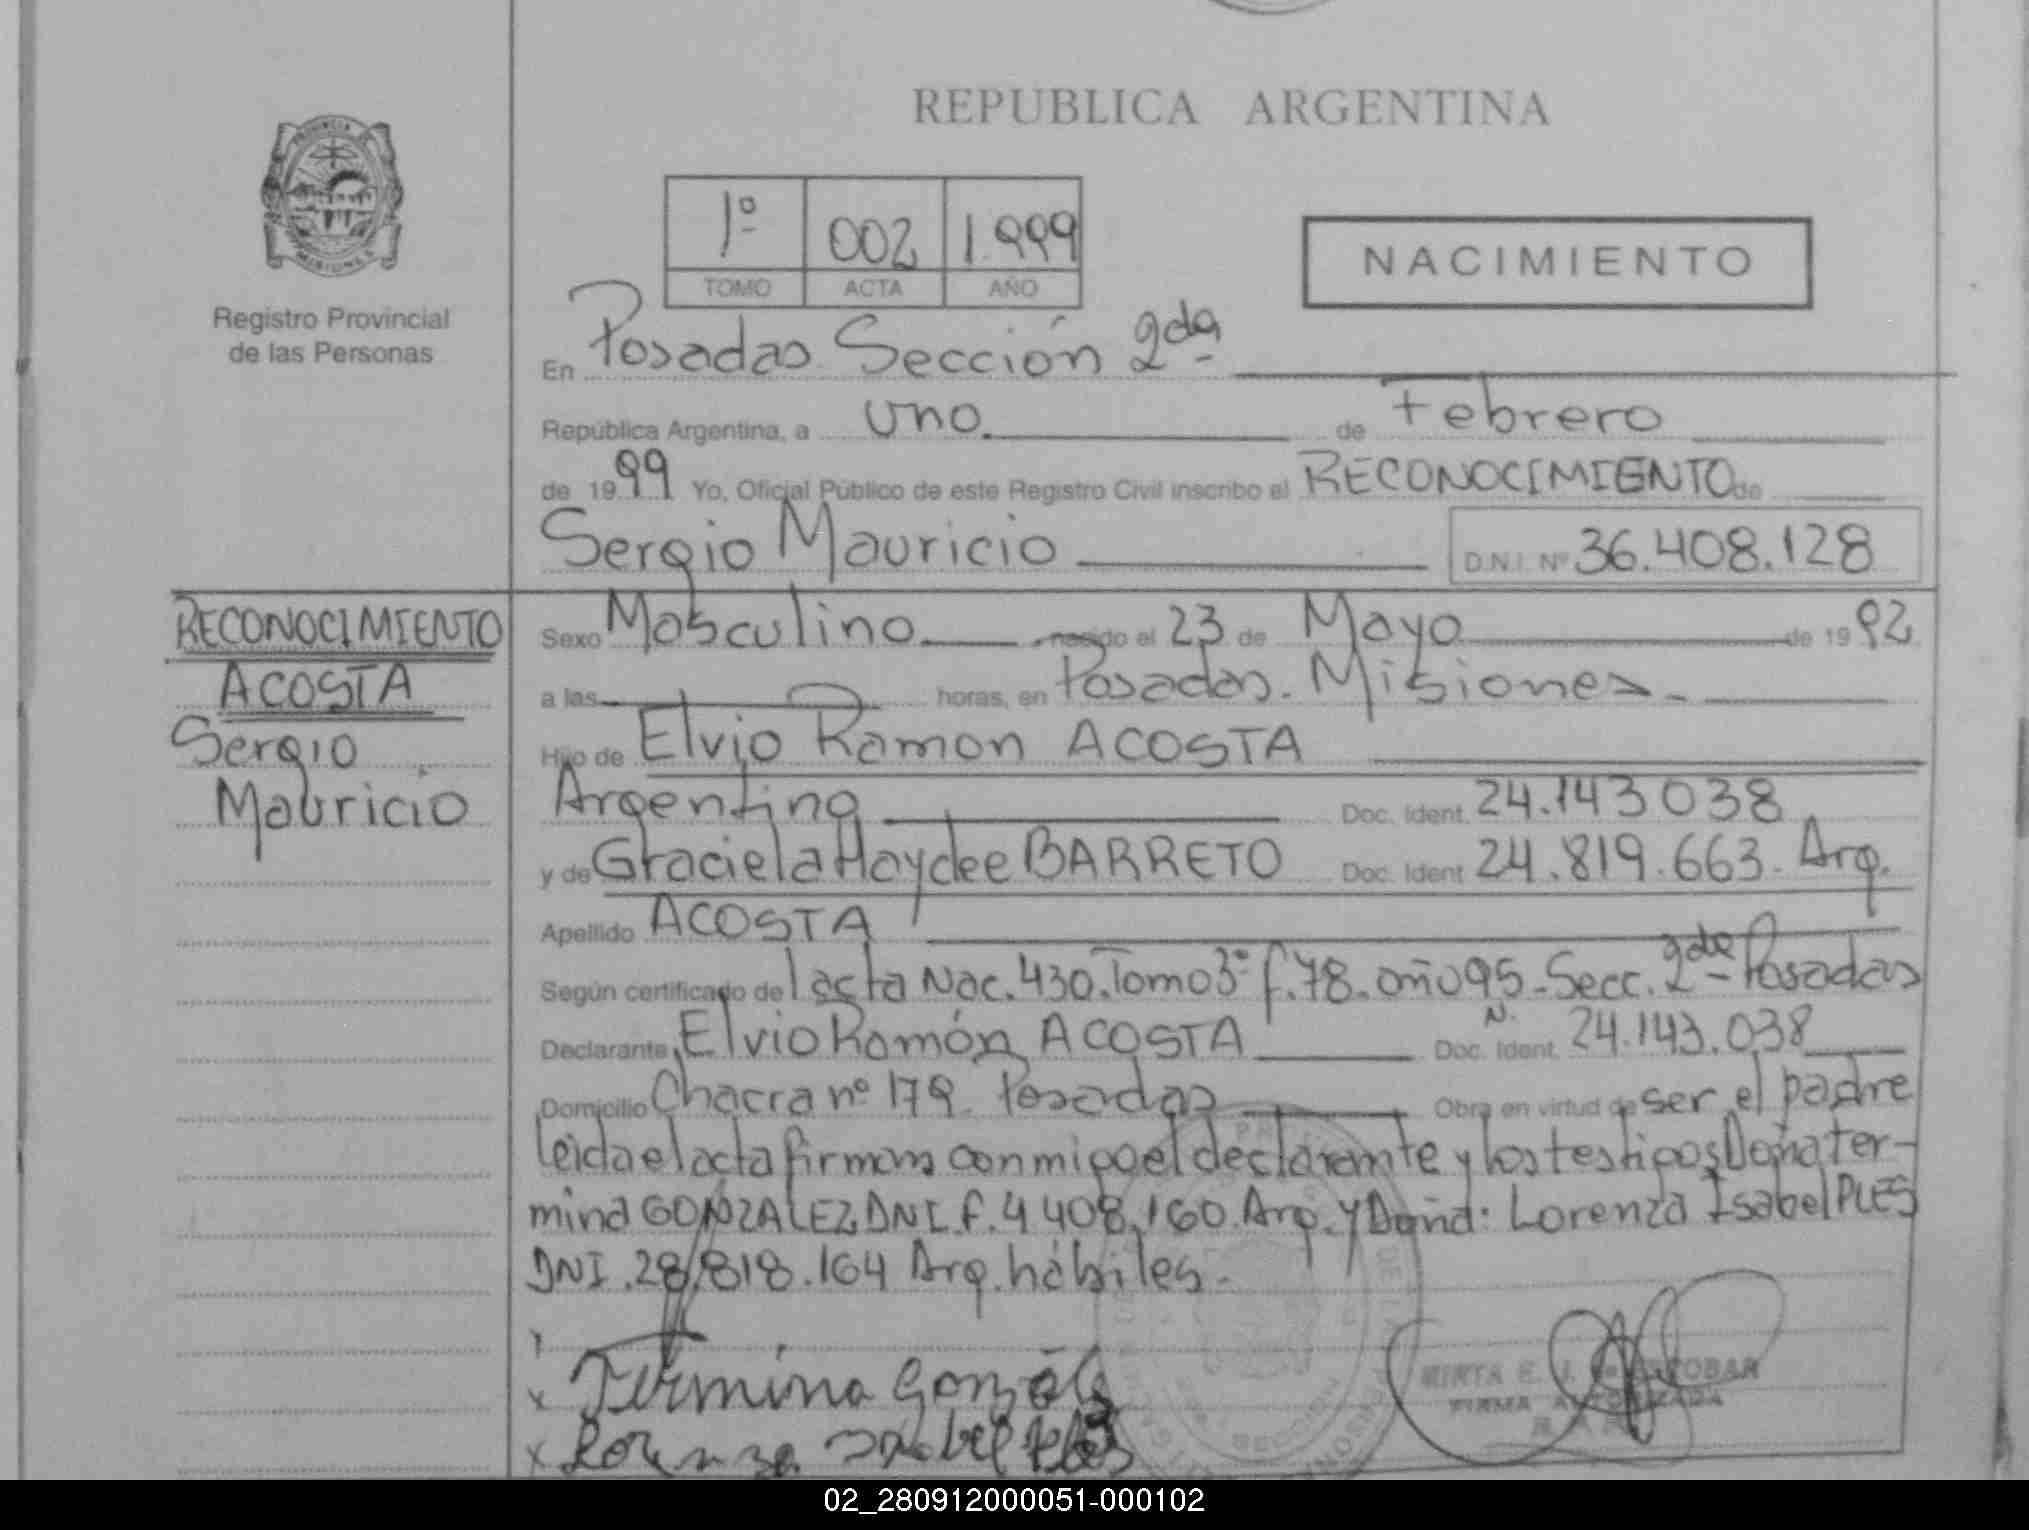 REPUBLICA ARGENTINA
PROVINCIA DE
MISIONES
Registro Provincial
de las Personas
1º 002 1.999
TOMO ACTA AÑO
NACIMIENTO
En Posadas Sección 2da
República Argentina, a uno de Febrero
de 1999 Yo, Oficial Público de este Registro Civil inscribo el RECONOCIMIENTO de
Sergio Mauricio D.N.I. Nº 36.408.128
RECONOCIMIENTO
ACOSTA
Sergio
Mauricio
Sexo Masculino nacido el 23 de Mayo de 1992
a las horas, en Posadas. Misiones.
Hijo de Elvio Ramon ACOSTA
Argentino Doc. Ident. 24.143038
y de Graciela Haydee BARRETO Doc. Ident 24.819.663. Arg.
Apellido ACOSTA
Según certificado de l acta Nac. 430. Tomo 3º f. 78. año 95 - Secc. 2da Posadas
Declarante Elvio Ramón ACOSTA Doc. Ident. N. 24.143.038
Domicilio Chacra nº 179. Posadas Obra en virtud de ser el padre
leida el acta firman conmigo el declarante y los testigos Doña ter-
mina GONZALEZ DNI. f. 4 408.160. Arg. y Doña: Lorenza Isabel PLES
DNI. 28.818.164 Arg. hábiles.
x Termina Gonzál
x Lorenza Isabel
MIRTA E. J. de ESCOBAR
FIRMA AUTORIZADA
SECCION
02_280912000051-000102